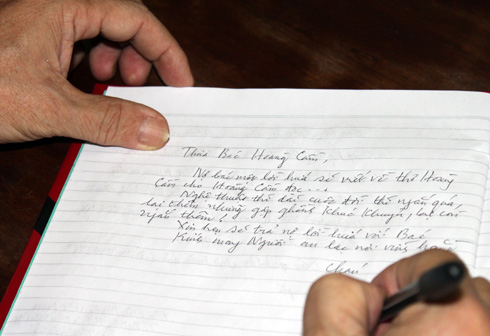 Thưa Bác Hoàng Cầm,
Nợ bác một lời hứa sẽ viết về thơ Hoàng
Cầm cho Hoàng Cầm
Nghệ thuật thì dài cuộc đời thì ngắn quá,
lại thêm những gập ghềnh khúc khuỷu, lại còn
thêm!
Xin hẹn sẽ trả nợ lời hứa với Bác
Kính mong Người an lạc nơi vĩnh hằng